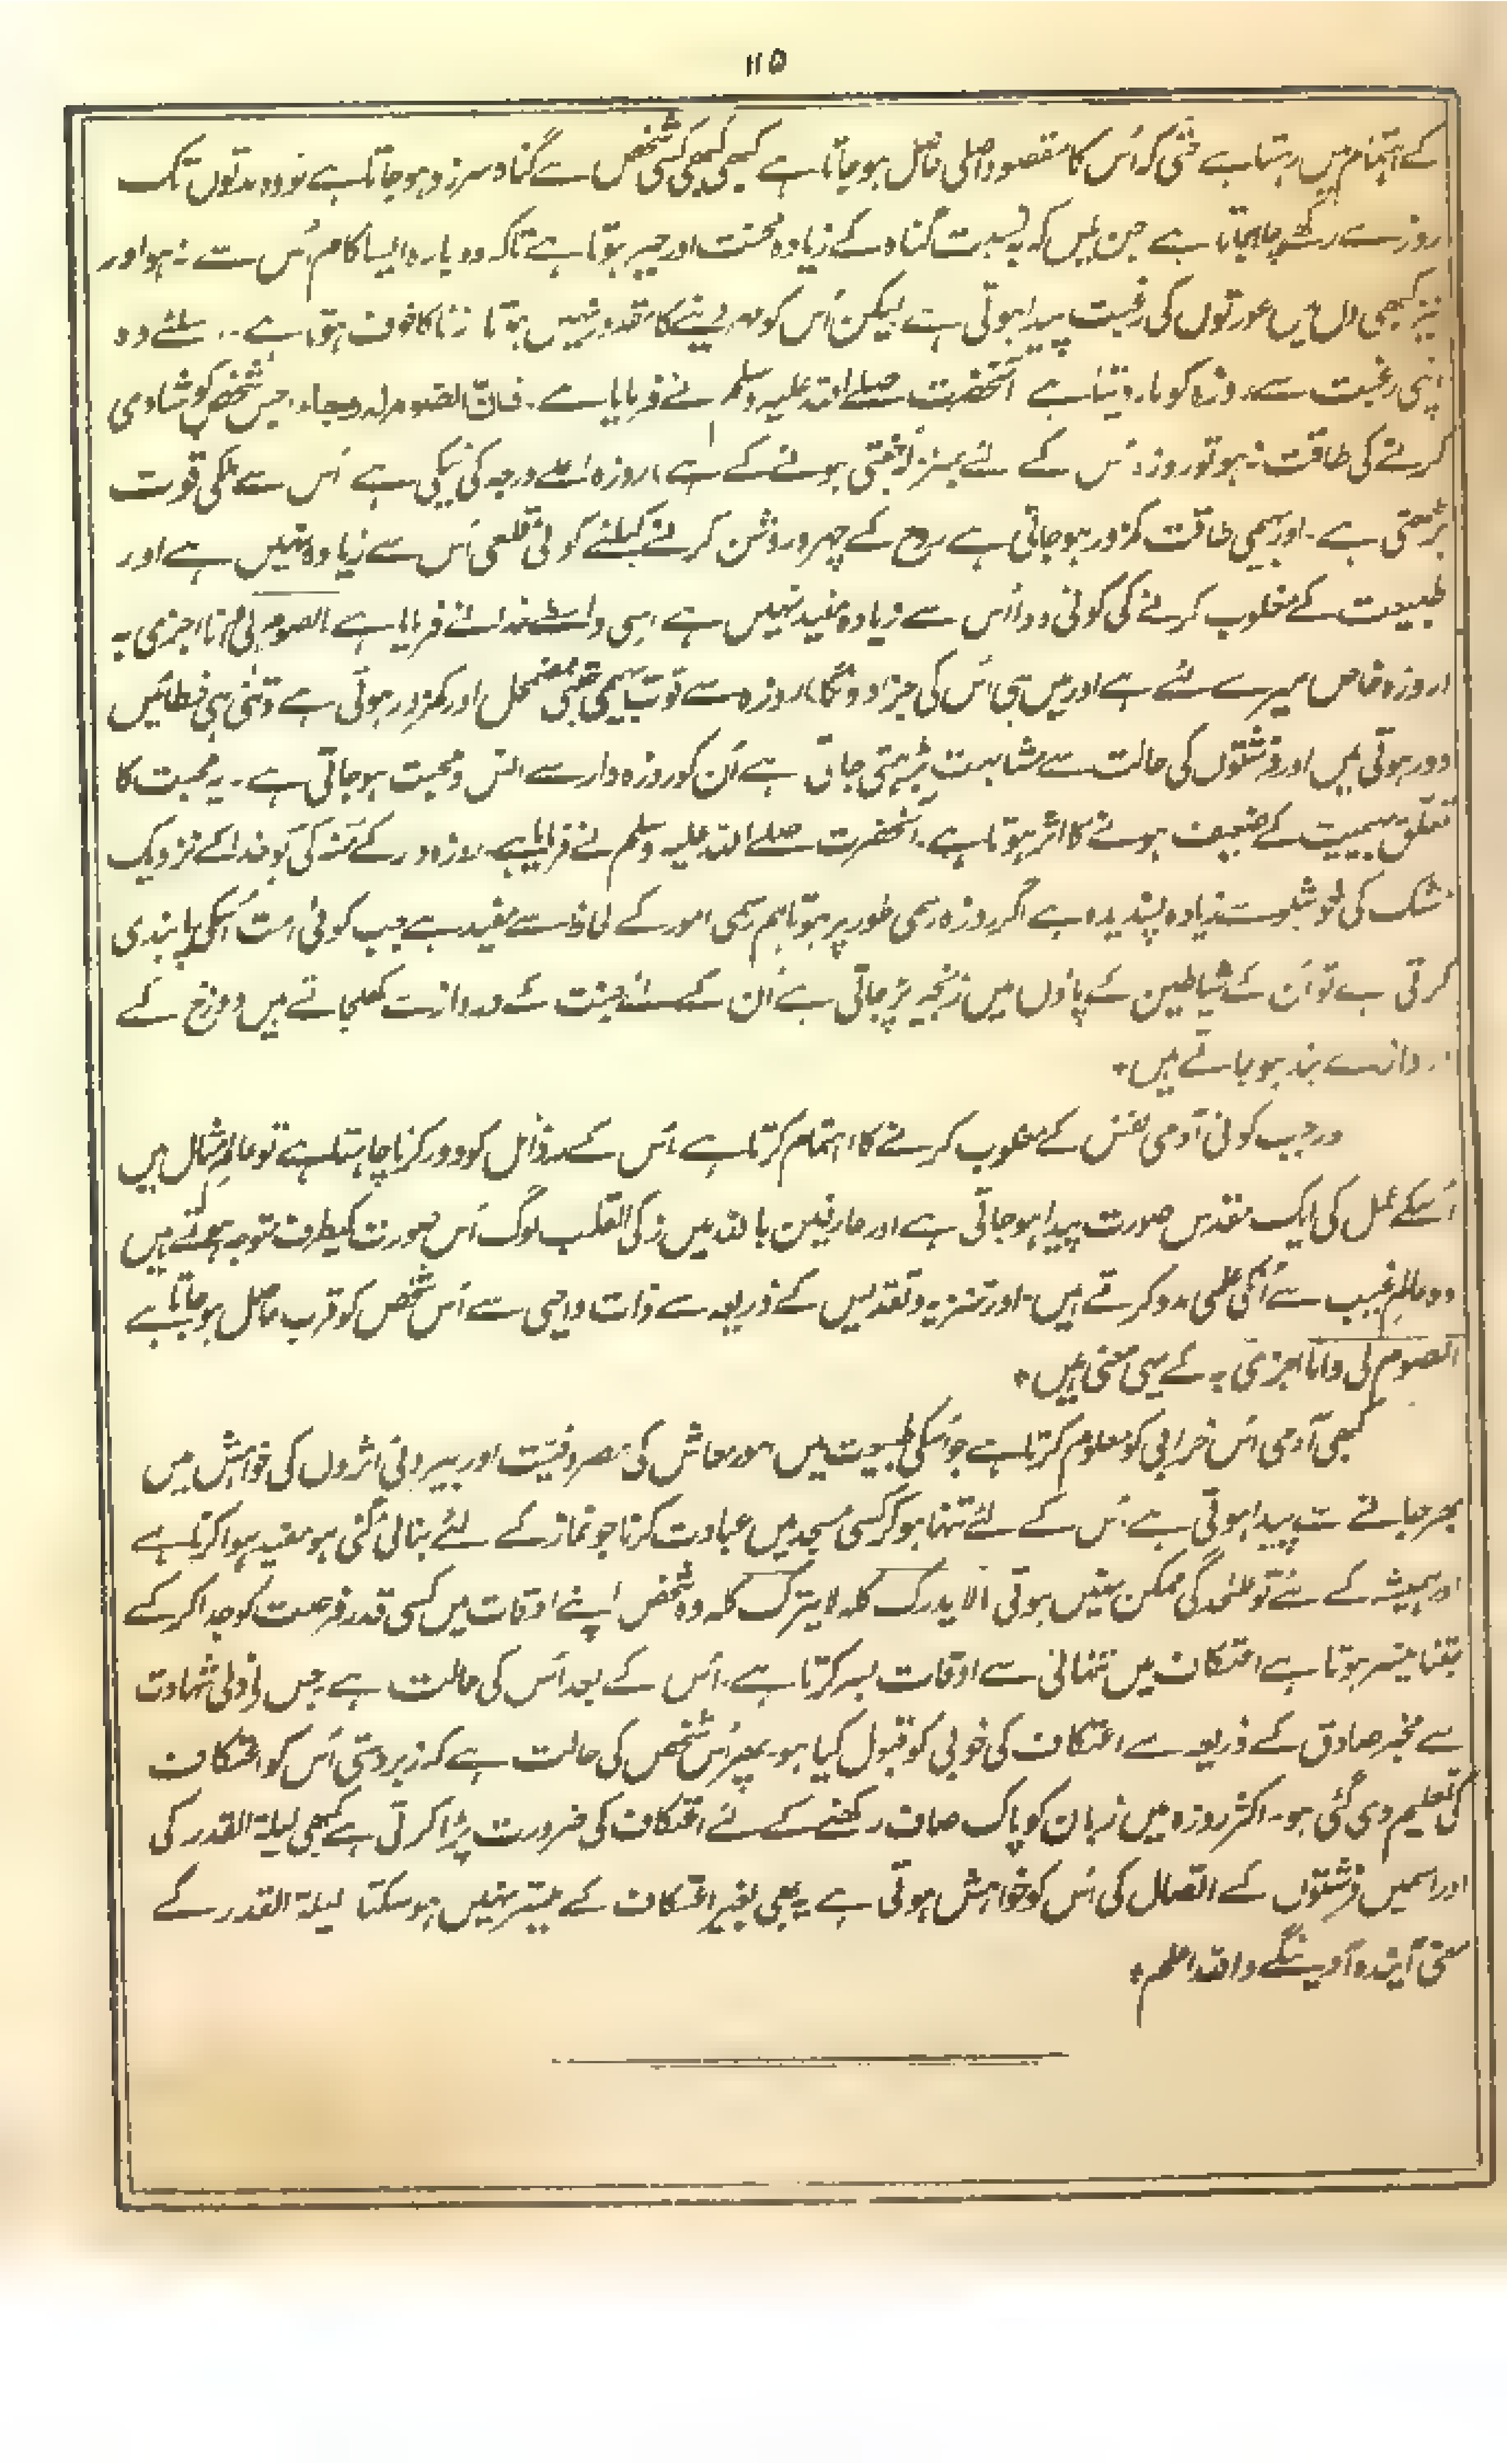 ۱۱۵
کے اہتمام میں رہتا ہے حتی کہ اُس کا مقصود اصلی حاصل ہو جاتا ہے کبھی کبھی کسی شخص سے گناہ سرزد ہو جاتا ہے تو وہ مدتوں تک
روزے رکھے چلا جاتا ہے جن میں کہ بہ نسبت گناہ کے زیادہ محنت اور جبر ہوتا ہے تاکہ دوبارہ ایسا کام اُس سے نہ ہو اور
نیز کبھی دل میں عورتوں کی رغبت پیدا ہوتی ہے لیکن اُس کو مہر دینے کا مقدور نہیں ہوتا زنا کا خوف ہوتا ہے سلئے وہ
اپنی رغبت سے روزہ کو مار دیتا ہے آنحضرت صلے اللہ علیہ وسلم نے فرمایا ہے۔ فان الصوم لہ وجاء جس شخص کو شادی
کرنے کی طاقت نہ ہو تو روزہ اس کے لئے بمنزلہ خصی ہونے کے ہے) روزہ اعلے درجہ کی نیکی ہے اُس سے ملکی قوت
بڑھتی ہے۔ اور بہیمی طاقت کمزور ہو جاتی ہے روح کے چہرہ روشن کرنے کیلئے کوئی قلعی اُس سے زیادہ نہیں ہے اور
طبیعت کے مغلوب کرنے کی کوئی دوا اُس سے زیادہ مفید نہیں ہے اسی واسطے خدا نے فرمایا ہے الصوم لی وانا اجزی بہ
(روزہ خاص میرے لئے ہے اور میں ہی اُس کی جزا دونگا) روزہ سے قوت بہیمی جتنی مضمحل اور کمزور ہوتی ہے وتنی ہی خطائیں
دور ہوتی ہیں اور فرشتوں کی حالت سے مشابہت بڑہتی جاتی ہے اُن کو روزہ دار سے انس و محبت ہو جاتی ہے۔ یہ محبت کا
تعلق بہیمیت کے ضعیف ہونے کا اثر ہوتا ہے۔ آنحضرت صلے اللہ علیہ وسلم نے فرمایا ہے روزہ دار کے مُنہ کی بو خدا کے نزدیک
مشک کی خوشبو سے زیادہ پسندیدہ ہے اگر روزہ رسمی طور پر ہو تاہم رسمی امور کے لحاظ سے مفید ہے جب کوئی امت اُسکی پابندی
کرتی ہے تو اُن کے شیاطین کے پاؤں میں زنجیر پڑ جاتی ہے اُن کے لئے جنت کے دروازے کھلجاتے ہیں دوزخ کے
دروازے بند ہو جاتے ہیں*
ورجب کوئی آدمی نفس کے مغلوب کرنے کا اہتمام کرتا ہے اُس کے رذائل کو دور کرنا چاہتا ہے تو عالم مثال میں
اُسکے عمل کی ایک مقدس صورت پیدا ہو جاتی ہے اور عارفین باللہ میں زکی القلب لوگ اُس صورت کیطرف متوجہ ہوتے ہیں
وہ عالم غیب سے اُسکی علمی مدد کرتے ہیں۔ اور تنزیہ و تقدیس کے ذریعہ سے ذات واجبی سے اُس شخص کو قرب حاصل ہو جاتا ہے
الصوم لی وانا اجزی بہ کے یہی معنی ہیں*
کبھی آدمی اُس خرابی کو معلوم کرتا ہے جو اُسکی طبیعت میں امور معاش کی مصروفیت اور بیرونی اثروں کی خواہش میں
بھر جانے سے پیدا ہوتی ہے اُس کے لئے تنہا ہو کر کسی مسجد میں عبادت کرنا جو نماز کے لئے بنالی گئی ہو مفید ہوا کرتا ہے
اور ہمیشہ کے لئے تو علٰحدگی ممکن نہیں ہوتی الا یدرک کلہ لا یترک کلہ وہ شخص اپنے اوقات میں کسی قدر فرصت کو جدا کر کے
جتنا میسر ہوتا ہے اعتکاف میں تنہائی سے اوقات بسر کرتا ہے۔ اُس کے بعد اُس کی حالت ہے جس نے دلی شہادت
سے مخبر صادق کے ذریعہ سے اعتکاف کی خوبی کو قبول کیا ہو۔ پھر اُس شخص کی حالت ہے کہ زبردستی اُس کو اعتکاف
کی تعلیم دی گئی ہو۔ اکثر روزہ میں زبان کو پاک صاف رکھنے کے لئے اعتکاف کی ضرورت پڑا کرتی ہے کبھی لیلۃ القدر کی
اور اسمیں فرشتوں کے اتصال کی اُس کو خواہش ہوتی ہے یہ بھی بغیر اعتکاف کے میسر نہیں ہو سکتا لیلۃ القدر کے
معنی آیندہ آوینگے واللہ اعلم*